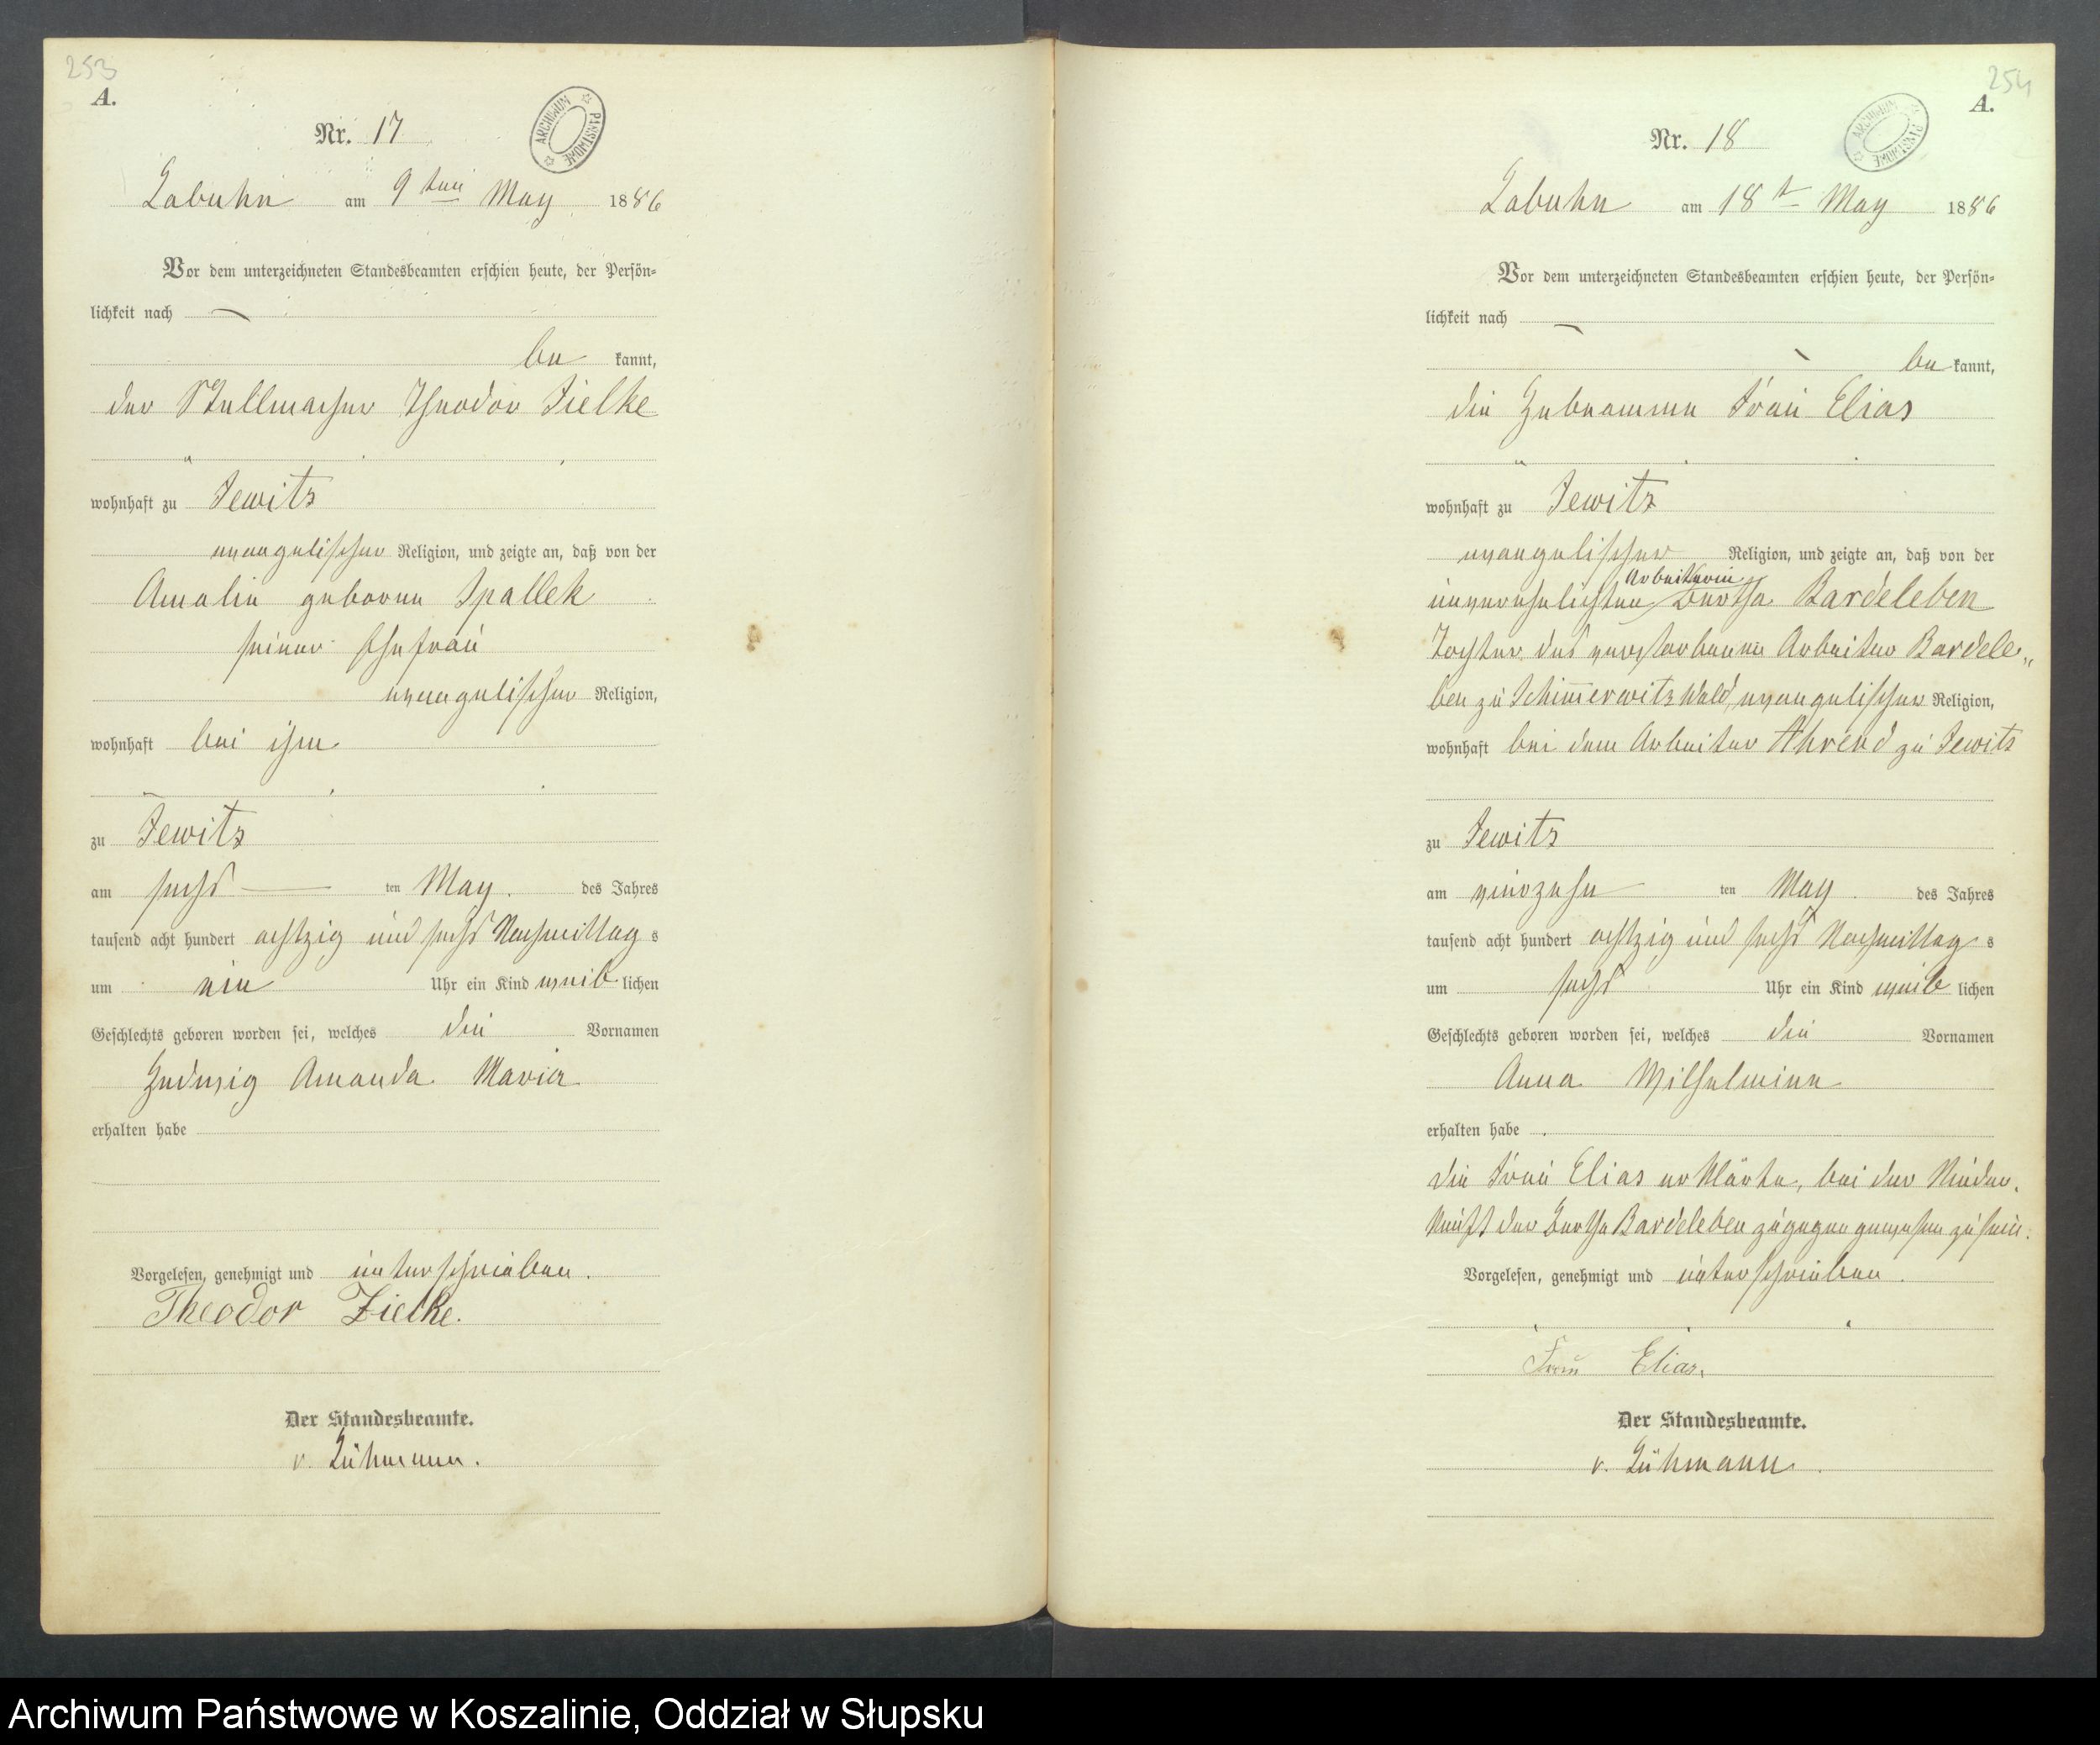 253
A.
ARCHIWUM PAŃSTWOWE
Nr. 17
Labuhn am 9ten May 1886
Vor dem unterzeichneten Standesbeamten erschien heute, der Persön=
lichkeit nach
be kannt,
der Stellmacher Theodor Zielke
wohnhaft zu Jewitz
evangelischer Religion, und zeigte an, daß von der
Amalie geborene Spallek
seiner Ehefrau
evangelischer Religion,
wohnhaft bei ihm
zu Jewitz
am sechs ten May. des Jahres
tausend acht hundert achtzig und sechs Nachmittag s
um ein Uhr ein Kind weib lichen
Geschlechts geboren worden sei, welches die Vornamen
Hedwig Amanda Maria
erhalten habe
Vorgelesen, genehmigt und unterschrieben.
Theodor Zielke.
Der Standesbeamte.
v. Lühmann.
254
A.
ARCHIWUM PAŃSTWOWE
Nr. 18
Labuhn am 18t May 1886
Vor dem unterzeichneten Standesbeamten erschien heute, der Persön=
lichkeit nach
be kannt,
die Hebeamme Frau Elias
wohnhaft zu Jewitz
evangelischer Religion, und zeigte an, daß von der
Arbeiterin
unverehelichten Bertha Bardeleben
Tochter des verstorbenen Arbeiter Bardele„
ben zu Schimmerwitz Wald, evangelischer Religion,
wohnhaft bei dem Arbeiter Ahrend zu Jewitz
zu Jewitz
am vierzehn ten May des Jahres
tausend acht hundert achtzig und sechs Nachmittag s
um sechs Uhr ein Kind weib lichen
Geschlechts geboren worden sei, welches die Vornamen
Anna Wilhelmine
erhalten habe.
die Frau Elias erklärte, bei der Nieder.
kunft der Bertha Bardeleben zugegen gewesen zu sein.
Vorgelesen, genehmigt und unterschrieben.
Frau Elias.
Der Standesbeamte.
v. Lühmann.
Archiwum Państwowe w Koszalinie, Oddział w Słupsku